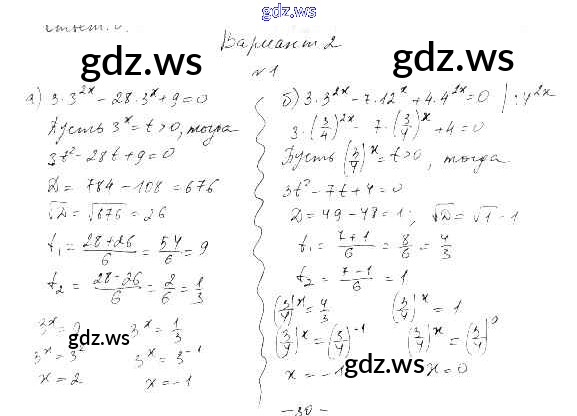 gdz.ws
Ответ:
Вариант 2
gdz.ws
gdz.ws
№1
а) 3·3^{2x} - 28·3^x + 9 = 0
Пусть 3^x = t > 0, тогда
3t² - 28t + 9 = 0
D = 784 - 108 = 676
√D = √676 = 26
t₁ = (28+26)/6 = 54/6 = 9
t₂ = (28-26)/6 = 2/6 = 1/3
3^x = 9 3^x = 1/3
3^x = 3² 3^x = 3^{-1}
x = 2 x = -1
gdz.ws
б) 3·3^{2x} - 7·12^x + 4·4^{2x} = 0 | : 4^{2x}
3·(3/4)^{2x} - 7·(3/4)^x + 4 = 0
Пусть (3/4)^x = t > 0, тогда
3t² - 7t + 4 = 0
D = 49 - 48 = 1; √D = √1 = 1
t₁ = (7+1)/6 = 8/6 = 4/3
t₂ = (7-1)/6 = 1
(3/4)^x = 4/3 (3/4)^x = 1
(3/4)^x = (3/4)^{-1} (3/4)^x = (3/4)^0
x = -1 x = 0
gdz.ws
- 30 -